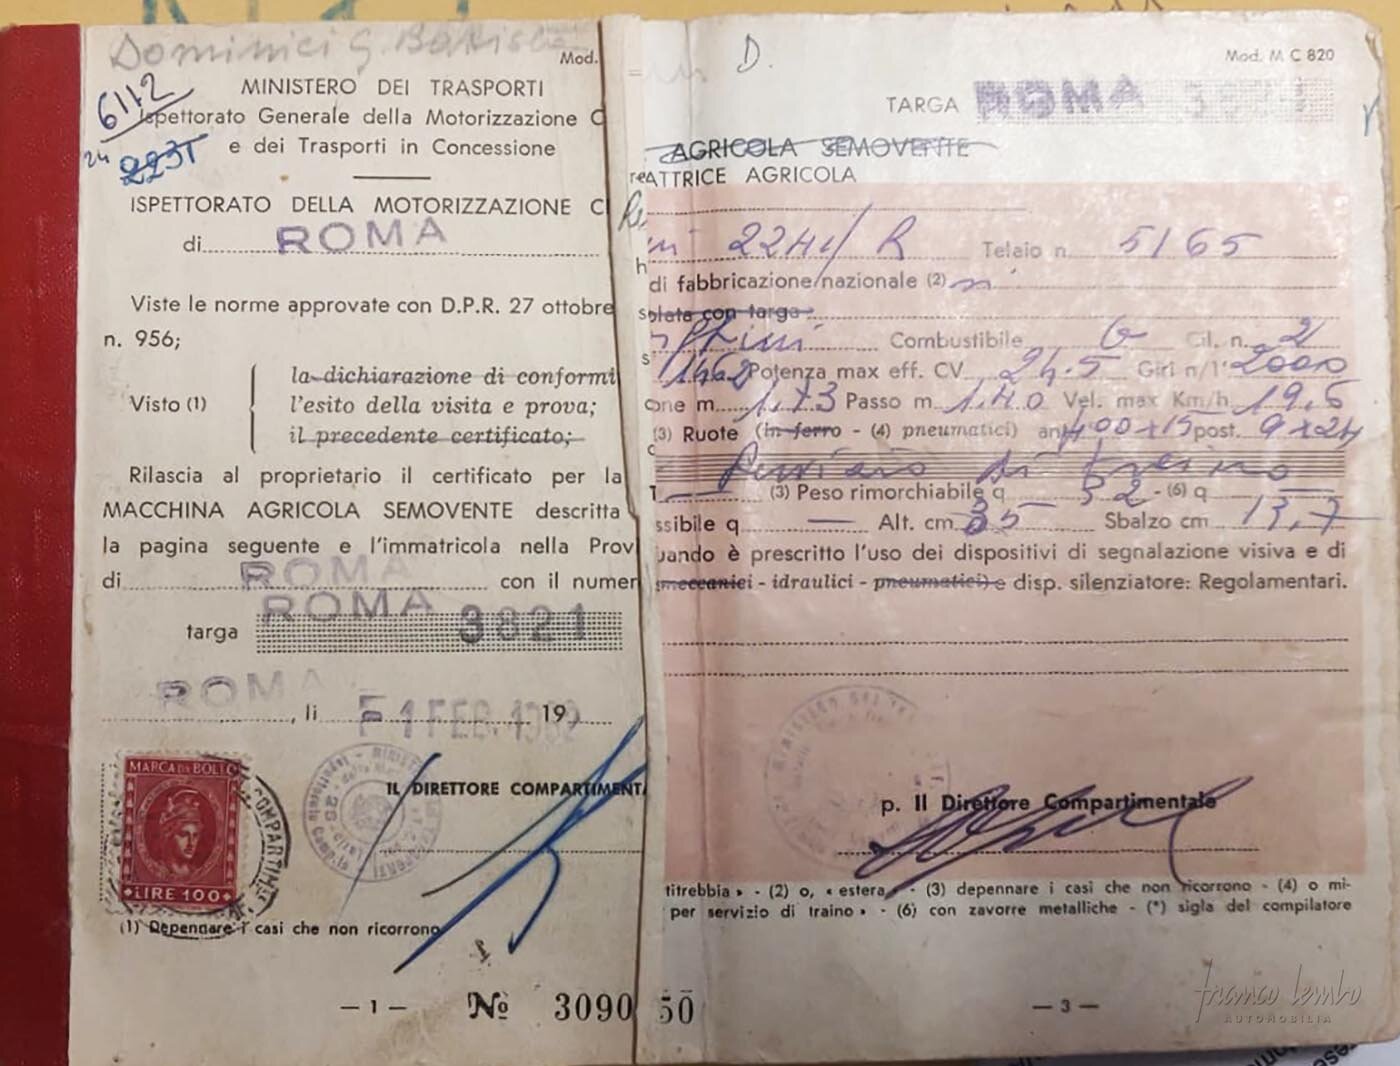 Dominici G. Battista
Mod.
6112
24 2231
MINISTERO DEI TRASPORTI
Ispettorato Generale della Motorizzazione C
e dei Trasporti in Concessione
ISPETTORATO DELLA MOTORIZZAZIONE CI
di ROMA
Viste le norme approvate con D.P.R. 27 ottobre
n. 956;
la dichiarazione di conformi
Visto (1) l'esito della visita e prova;
il precedente certificato;
Rilascia al proprietario il certificato per la
MACCHINA AGRICOLA SEMOVENTE descritta
la pagina seguente e l'immatricola nella Prov
di ROMA con il numer
targa ROMA 3821
ROMA, li - 1 FEB. 1962 19
MARCA DA BOLLO
LIRE 100
IL DIRETTORE COMPARTIMENTA
(1) Depennare i casi che non ricorrono
— 1 — No 3090 50
D.
Mod. M C 820
TARGA ROMA
AGRICOLA SEMOVENTE
ATTRICE AGRICOLA
22HI/R Telaio n. 5165
di fabbricazione/nazionale (2) n
solata con targa
Combustibile G Cil. n. 2
1462 Potenza max eff. CV 24.5 Giri n/1' 2000
one m. 1.73 Passo m 1.40 Vel. max Km/h 19.5
(3) Ruote (in ferro - (4) pneumatici) ant 400x15 post. 9x24
Servizio di traino
(3) Peso rimorchiabile q 32 - (6) q
ssibile q — Alt. cm 35 Sbalzo cm 13,7
uando è prescritto l'uso dei dispositivi di segnalazione visiva e di
(meccanici - idraulici - pneumatici) e disp. silenziatore: Regolamentari.
p. Il Direttore Compartimentale
titrebbia » - (2) o, « estera » - (3) depennare i casi che non ricorrono - (4) o mi-
per servizio di traino » - (6) con zavorre metalliche - (*) sigla del compilatore
— 3 —
franco lembo
AUTOMOBILIA